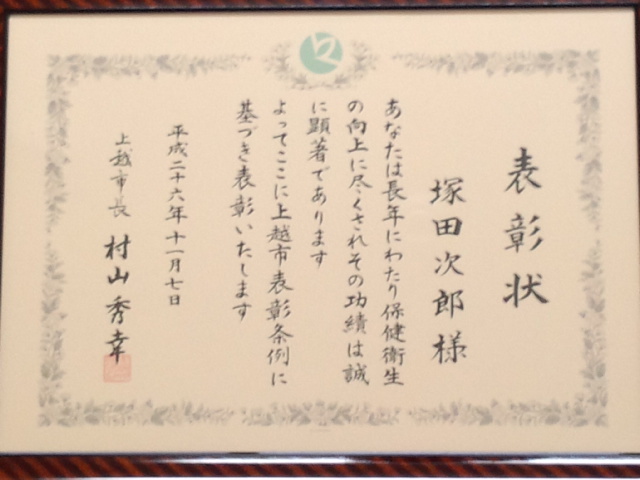 表彰状
塚田次郎様
あなたは長年にわたり保健衛生
の向上に尽くされその功績は誠
に顕著であります
よってここに上越市表彰条例に
基づき表彰いたします
平成二十六年十一月七日
上越市長 村山秀幸